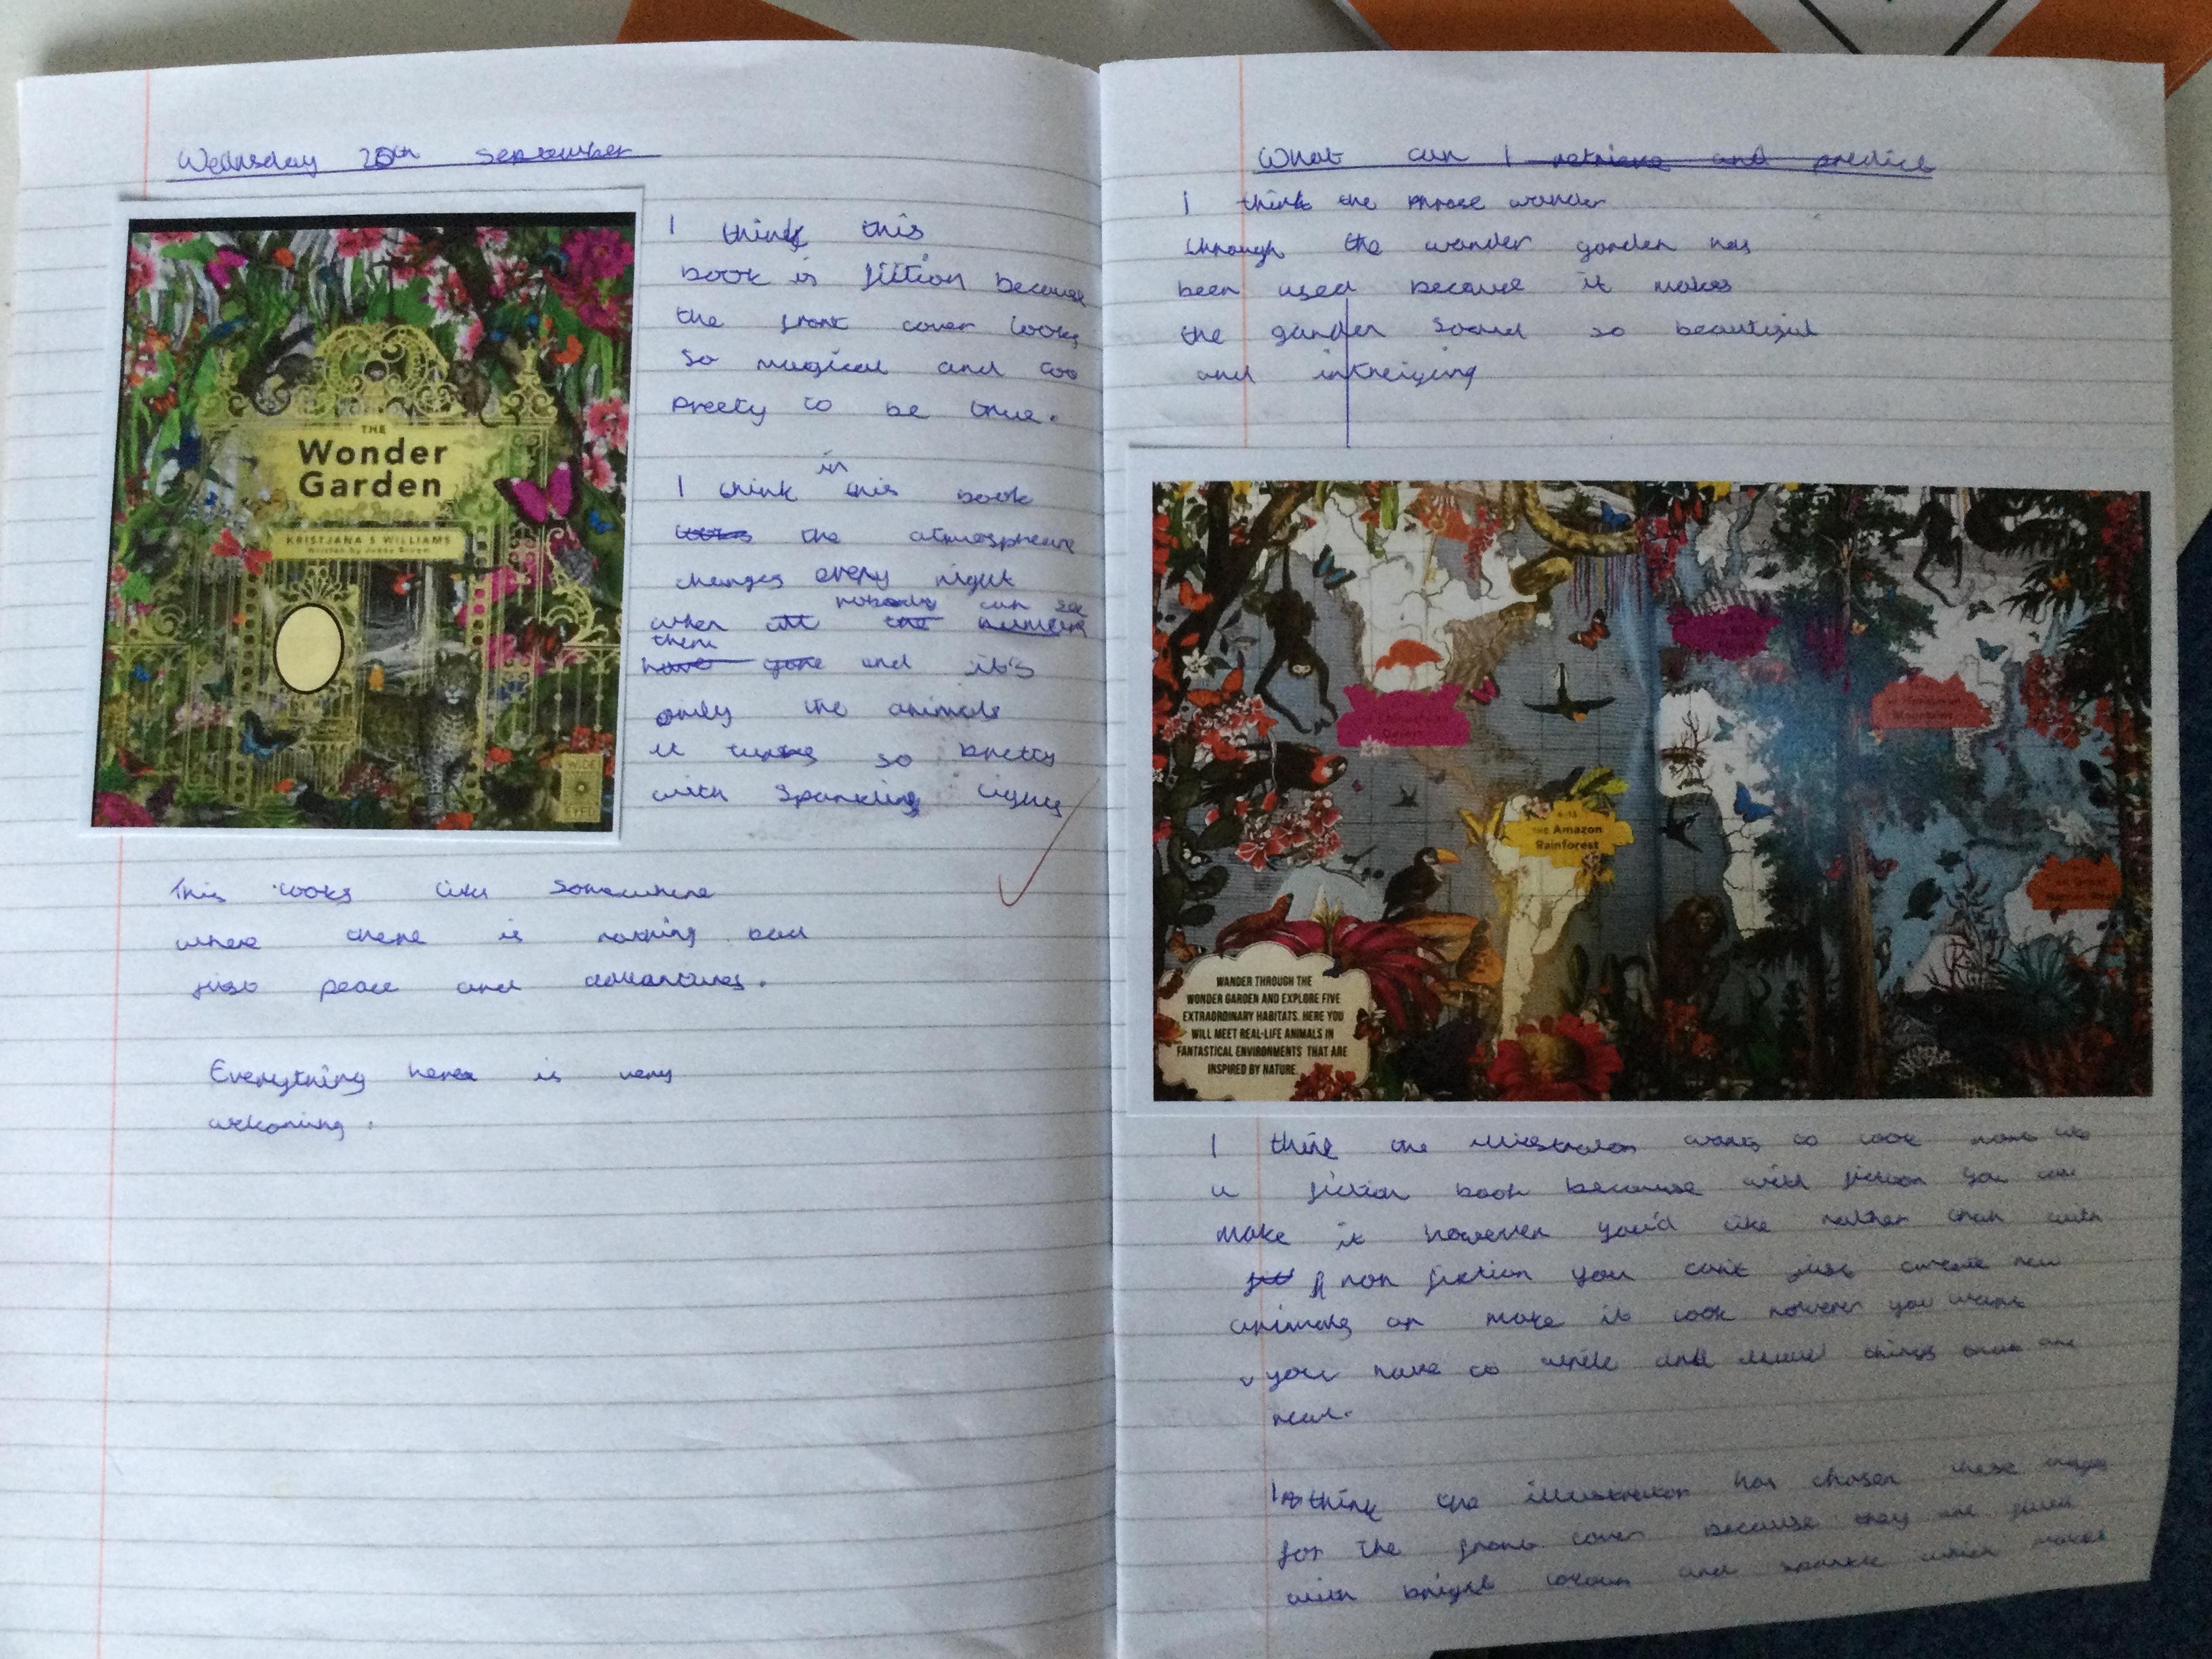 Wednsday 20th September
THE
Wonder
Garden
KRISTJANA S WILLIAMS
Written by Jenny Broom
WIDE
EYED
I think this
book is fiction because
the front cover looks
so magical and too
preety to be true.
in
I think this book
looks the atmospheure
changes every night
nobody can see
when all the humans
them
have gone and it's
only the animals
it turns so pretty
with sparkling lights
This looks like somewhere
where there is nothing bad
just peace and advantures.
Everything here is very
welkoming.
What can I retrieve and predict
I think the phrase wander
through the wonder garden has
been used because it makes
the garden sound so beautiful
and intreiging
THE Amazon
Rainforest
WANDER THROUGH THE
WONDER GARDEN AND EXPLORE FIVE
EXTRAORDINARY HABITATS. HERE YOU
WILL MEET REAL-LIFE ANIMALS IN
FANTASTICAL ENVIRONMENTS THAT ARE
INSPIRED BY NATURE.
I think the illistrator wants to look more like
a fiction book because with fiction you can
make it however you'd like rather than with
non fiction you can't just create new
animals or make it look however you want
you have to write and things that are
real.
I think the illustrator has chosen these images
for the front cover because they are filled
with bright colours and sparkle which makes